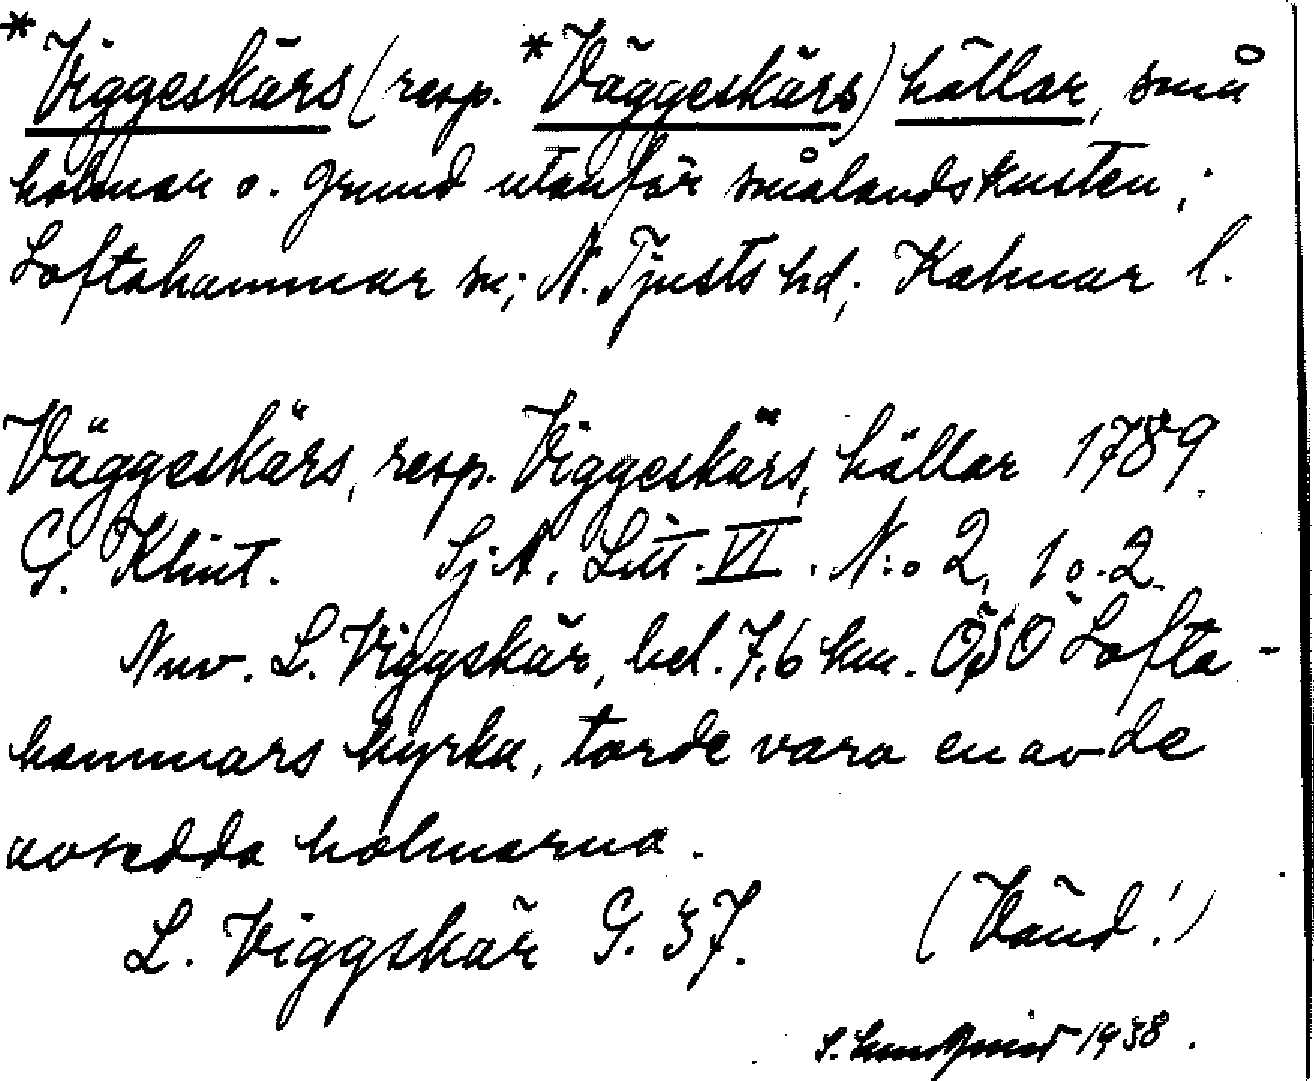 *Viggeskärs (resp. *Väggeskärs) hällar, små
holmar o. grund utanför smålandskusten;
Loftahammar sn; N. Tjusts hd; Kalmar l.
Väggeskärs, resp. Viggeskärs, hällar 1789.
G. Klint. Sj.A. Litt. VI. N:o 2, 1 o. 2.
Nuv. L. Viggskär, bel. 7,6 km. OSO Lofta-
hammars kyrka, torde vara en av de
avsedda holmarna.
L. Viggskär G. 37. (Vänd!)
S. Lundqvist 1938.